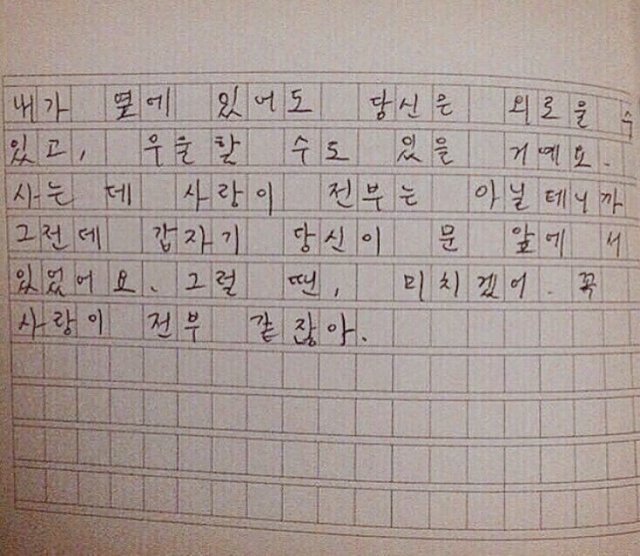 내가 옆에 있어도 당신은 외로울 수
있고, 우울할 수도 있을 거예요.
사는 데 사랑이 전부는 아닐테니까
그런데 갑자기 당신이 문 앞에 서
있었어요. 그럴 땐, 미치겠어. 꼭
사랑이 전부 같잖아.